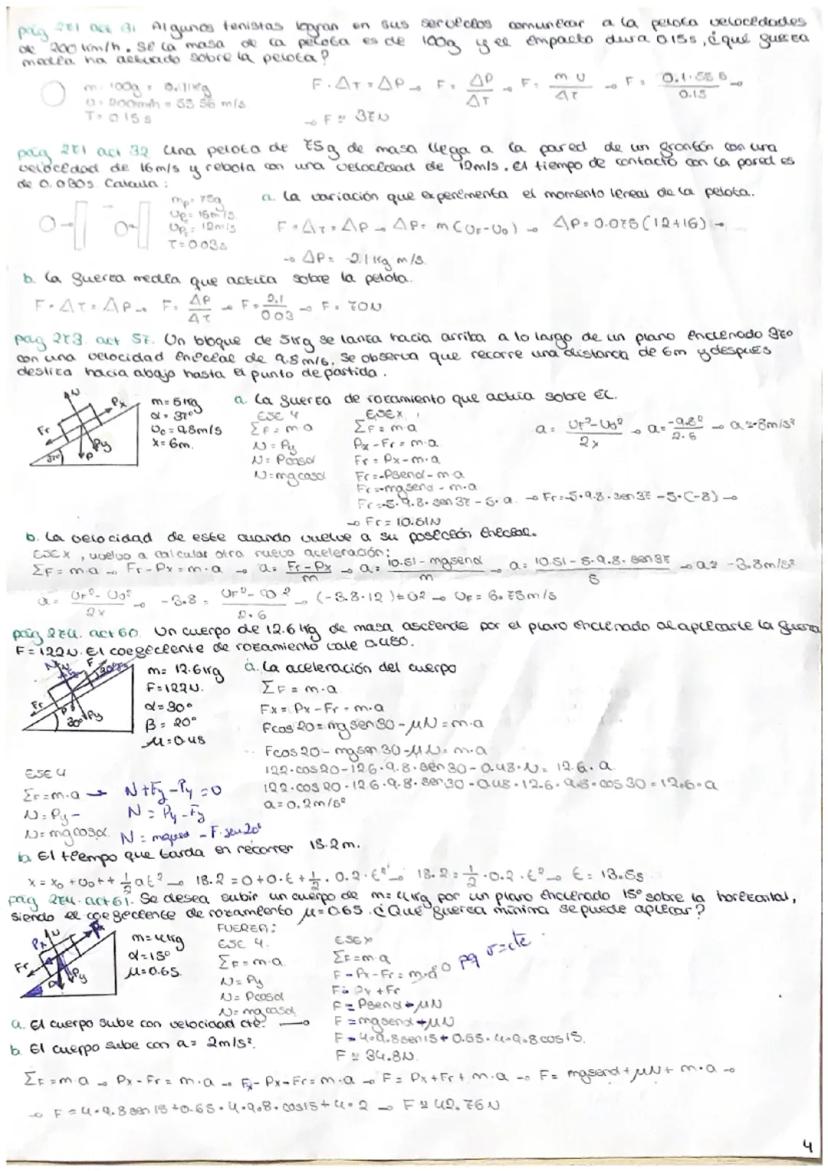 pág 271 act 31 Algunos tenistas logran en sus servicios comunicar a la pelota velocidades
de 200 km/h. Si la masa de la pelota es de 100g y el impacto dura 0.15s, ¿qué fuerza
media ha actuado sobre la pelota?
m = 100g = 0.1kg
v = 200km/h = 55.56 m/s
T = 0.15 s
F · ΔT = ΔP → F = ΔP/ΔT → F = m v/ΔT → F = 0.1·55.6/0.15 →
→ F ≈ 37N
pág 271 act 32 Una pelota de 75g de masa llega a la pared de un frontón con una
velocidad de 16m/s y rebota con una velocidad de 12m/s. El tiempo de contacto con la pared es
de 0.030s Calcula:
mp = 75g
vp = 16m/s
vpf = 12m/s
T = 0.03s
a. La variación que experimenta el momento lineal de la pelota.
F · ΔT = ΔP → ΔP = m(vF - v0) → ΔP = 0.075(12+16) →
→ ΔP = 2.1 kg m/s
b. La fuerza media que actúa sobre la pelota.
F · ΔT = ΔP → F = ΔP/ΔT → F = 2.1/0.03 → F = 70N
pág 273. act 57. Un bloque de 5kg se lanza hacia arriba a lo largo de un plano inclinado 37º
con una velocidad inicial de 9.8m/s. Se observa que recorre una distancia de 6m y después
desliza hacia abajo hasta el punto de partida.
N Px Fr Py P 37º
m = 5kg
α = 37º
v0 = 9.8m/s
x = 6m.
a. La fuerza de rozamiento que actúa sobre él.
EJE Y
ΣF = m a
N = Py
N = Pcosα
N = mgcosα
EJE X
ΣF = m a
Px - Fr = m·a
Fr = Px - m·a
Fr = -Psenα - m·a
Fr = -mgsenα - m·a
Fr = -5·9.8·sen37 - 5·a → Fr = -5·9.8·sen37 - 5·(-8) →
→ Fr = 10.51N
a = vF² - v0²/2x → a = -9.8²/2·6 → a ≈ -8m/s²
b. La velocidad de este cuando vuelve a su posición inicial.
EJE X, vuelvo a calcular otra nueva aceleración:
ΣF = m·a → Fr - Px = m·a → a = Fr - Px/m → a = 10.51 - mgsenα/m → a = 10.51 - 5·9.8·sen37/5 → a ≈ -3.8m/s²
a = vF² - v0²/2x → -3.8 = vF² - 0²/2·6 → (-3.8·12)+0² → vF = 6.75m/s
pág 274. act 60. Un cuerpo de 12.6 kg de masa asciende por el plano inclinado al aplicarle la fuerza
F = 122N. El coeficiente de rozamiento vale 0.48.
N F 20º Fr P Py 30º
m = 12.6kg
F = 122N.
α = 30º
β = 20º
μ = 0.48
a. La aceleración del cuerpo
ΣF = m·a
Fx - Px - Fr = m·a
Fcos20 - mgsen30 - μN = m·a
Fcos20 - mgsen30 - μN = m·a
122·cos20 - 12.6·9.8·sen30 - 0.48·N = 12.6·a
122·cos20 - 12.6·9.8·sen30 - 0.48·12.6·9.8·cos30 = 12.6·a
a = 0.2m/s²
EJE Y
ΣF = m·a → N + Fy - Py = 0
N = Py - N = Py - Fy
N = mgcosα N = mgcosα - F·sen20º
b. El tiempo que tarda en recorrer 18.2m.
x = x0 + v0t + 1/2 at² → 18.2 = 0 + 0·t + 1/2·0.2·t² → 18.2 = 1/2·0.2·t² → t = 13.5s
pág 274. act 61. Se desea subir un cuerpo de m = 4kg por un plano inclinado 15º sobre la horizontal,
siendo el coeficiente de rozamiento μ = 0.65. ¿Qué fuerza mínima se puede aplicar?
Px N F Fr Py
m = 4kg
α = 15º
μ = 0.65
FUERZA:
EJE Y.
ΣF = m·a
N = Py
N = Pcosα
N = mgcosα
EJE X
ΣF = m·a
F - Px - Fr = m·a 0 pq v = cte.
F = Px + Fr
F = Psenα + μN
F = mgsenα + μN
F = 4·9.8sen15 + 0.65·4·9.8cos15.
F ≈ 34.8N
a. El cuerpo sube con velocidad cte. →
b. El cuerpo sube con a = 2m/s².
ΣF = m a → Px - Fr = m·a → F - Px - Fr = m·a → F = Px + Fr + m·a → F = mgsenα + μN + m·a →
→ F = 4·9.8sen15 + 0.65·4·9.8·cos15 + 4·2 → F ≈ 42.76N
4